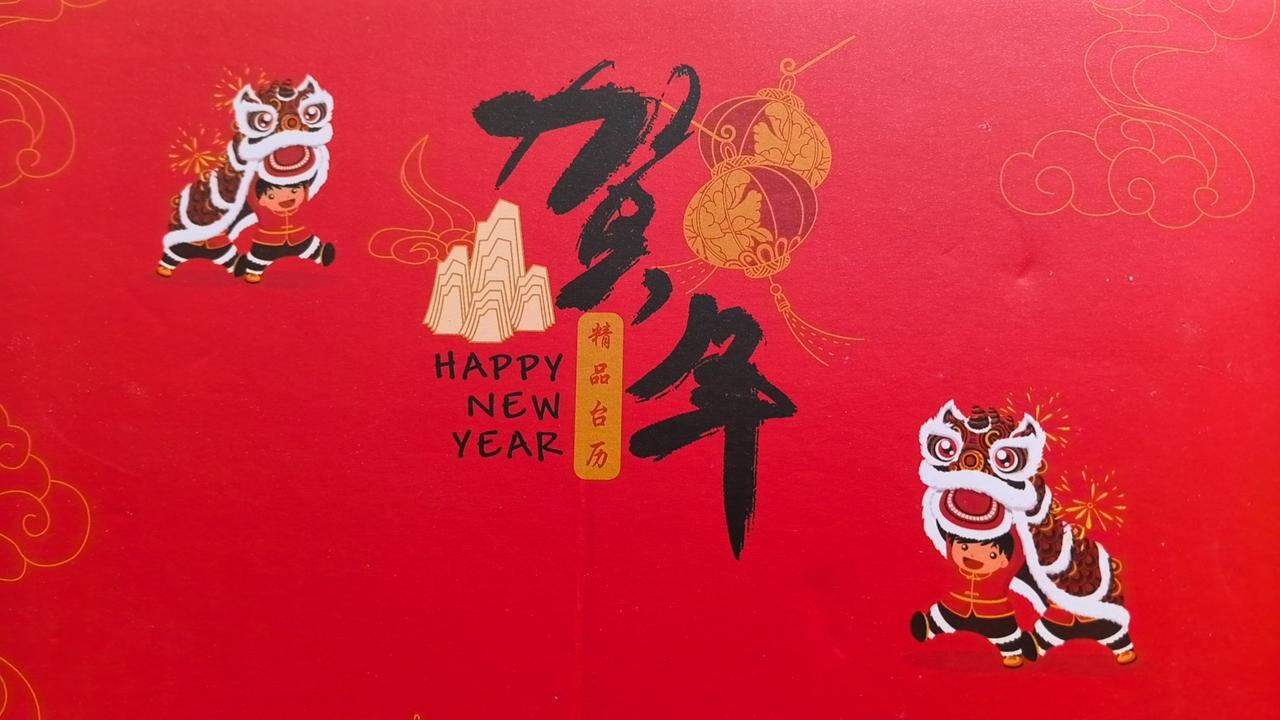 贺年
HAPPY
NEW
YEAR
精品台历